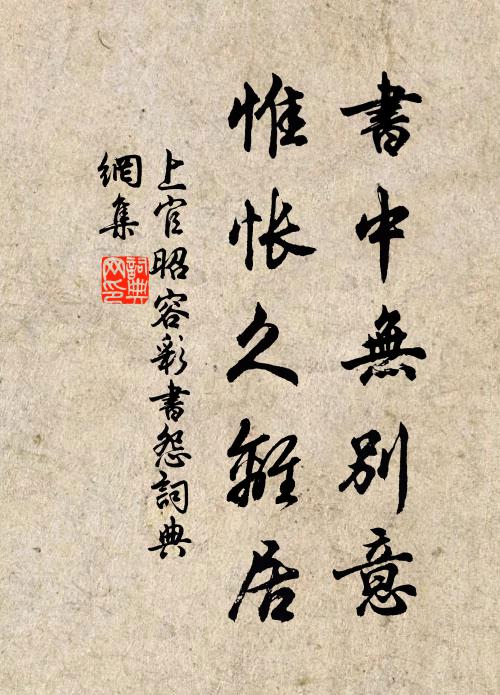 書中無別意
惟悵久離居
上官昭容彩書怨詞典
網集
詞典
網印